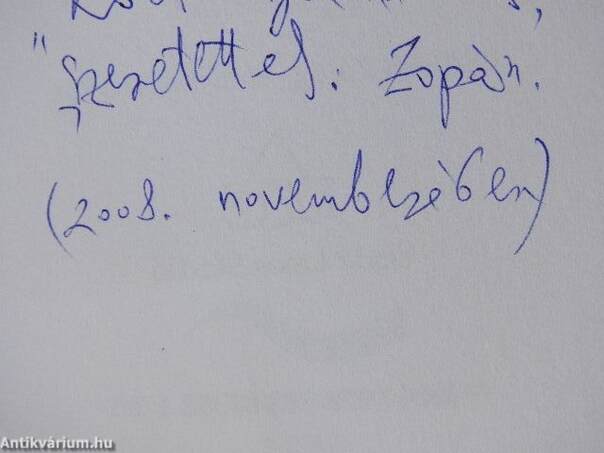 "szeretettel: Zopán.
(2008. novemberében)
Antikvárium.hu